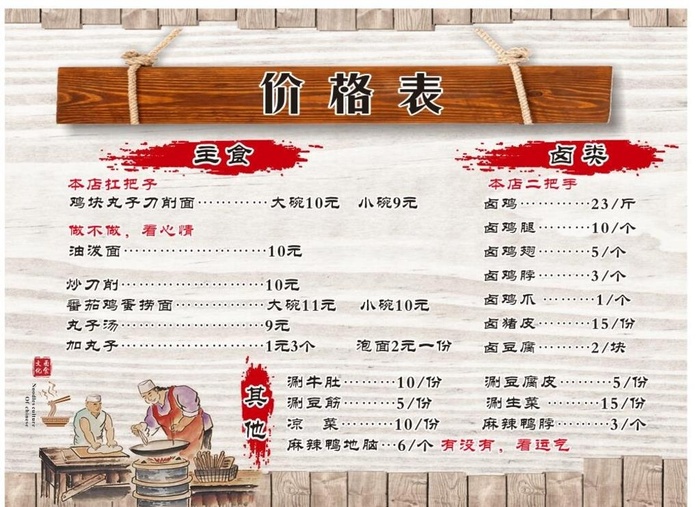 价格表
主食
本店扛把子
鸡块丸子刀削面…………大碗10元 小碗9元
做不做，看心情
油泼面……………………10元
炒刀削……………………10元
番茄鸡蛋捞面……………大碗11元 小碗10元
丸子汤……………………9元
加丸子……………………1元3个 泡面2元一份
卤类
本店二把手
卤鸡…………23/斤
卤鸡腿………10/个
卤鸡翅………5/个
卤鸡脖………3/个
卤鸡爪………1/个
卤猪皮………15/份
卤豆腐………2/块
其他
涮牛肚………10/份
涮豆筋………5/份
凉 菜………10/份
麻辣鸭地脑…6/个 有没有，看运气
涮豆腐皮………5/份
涮生菜………15/份
麻辣鸭脖………3/个
面食文化
Noodle culture
Of chinese